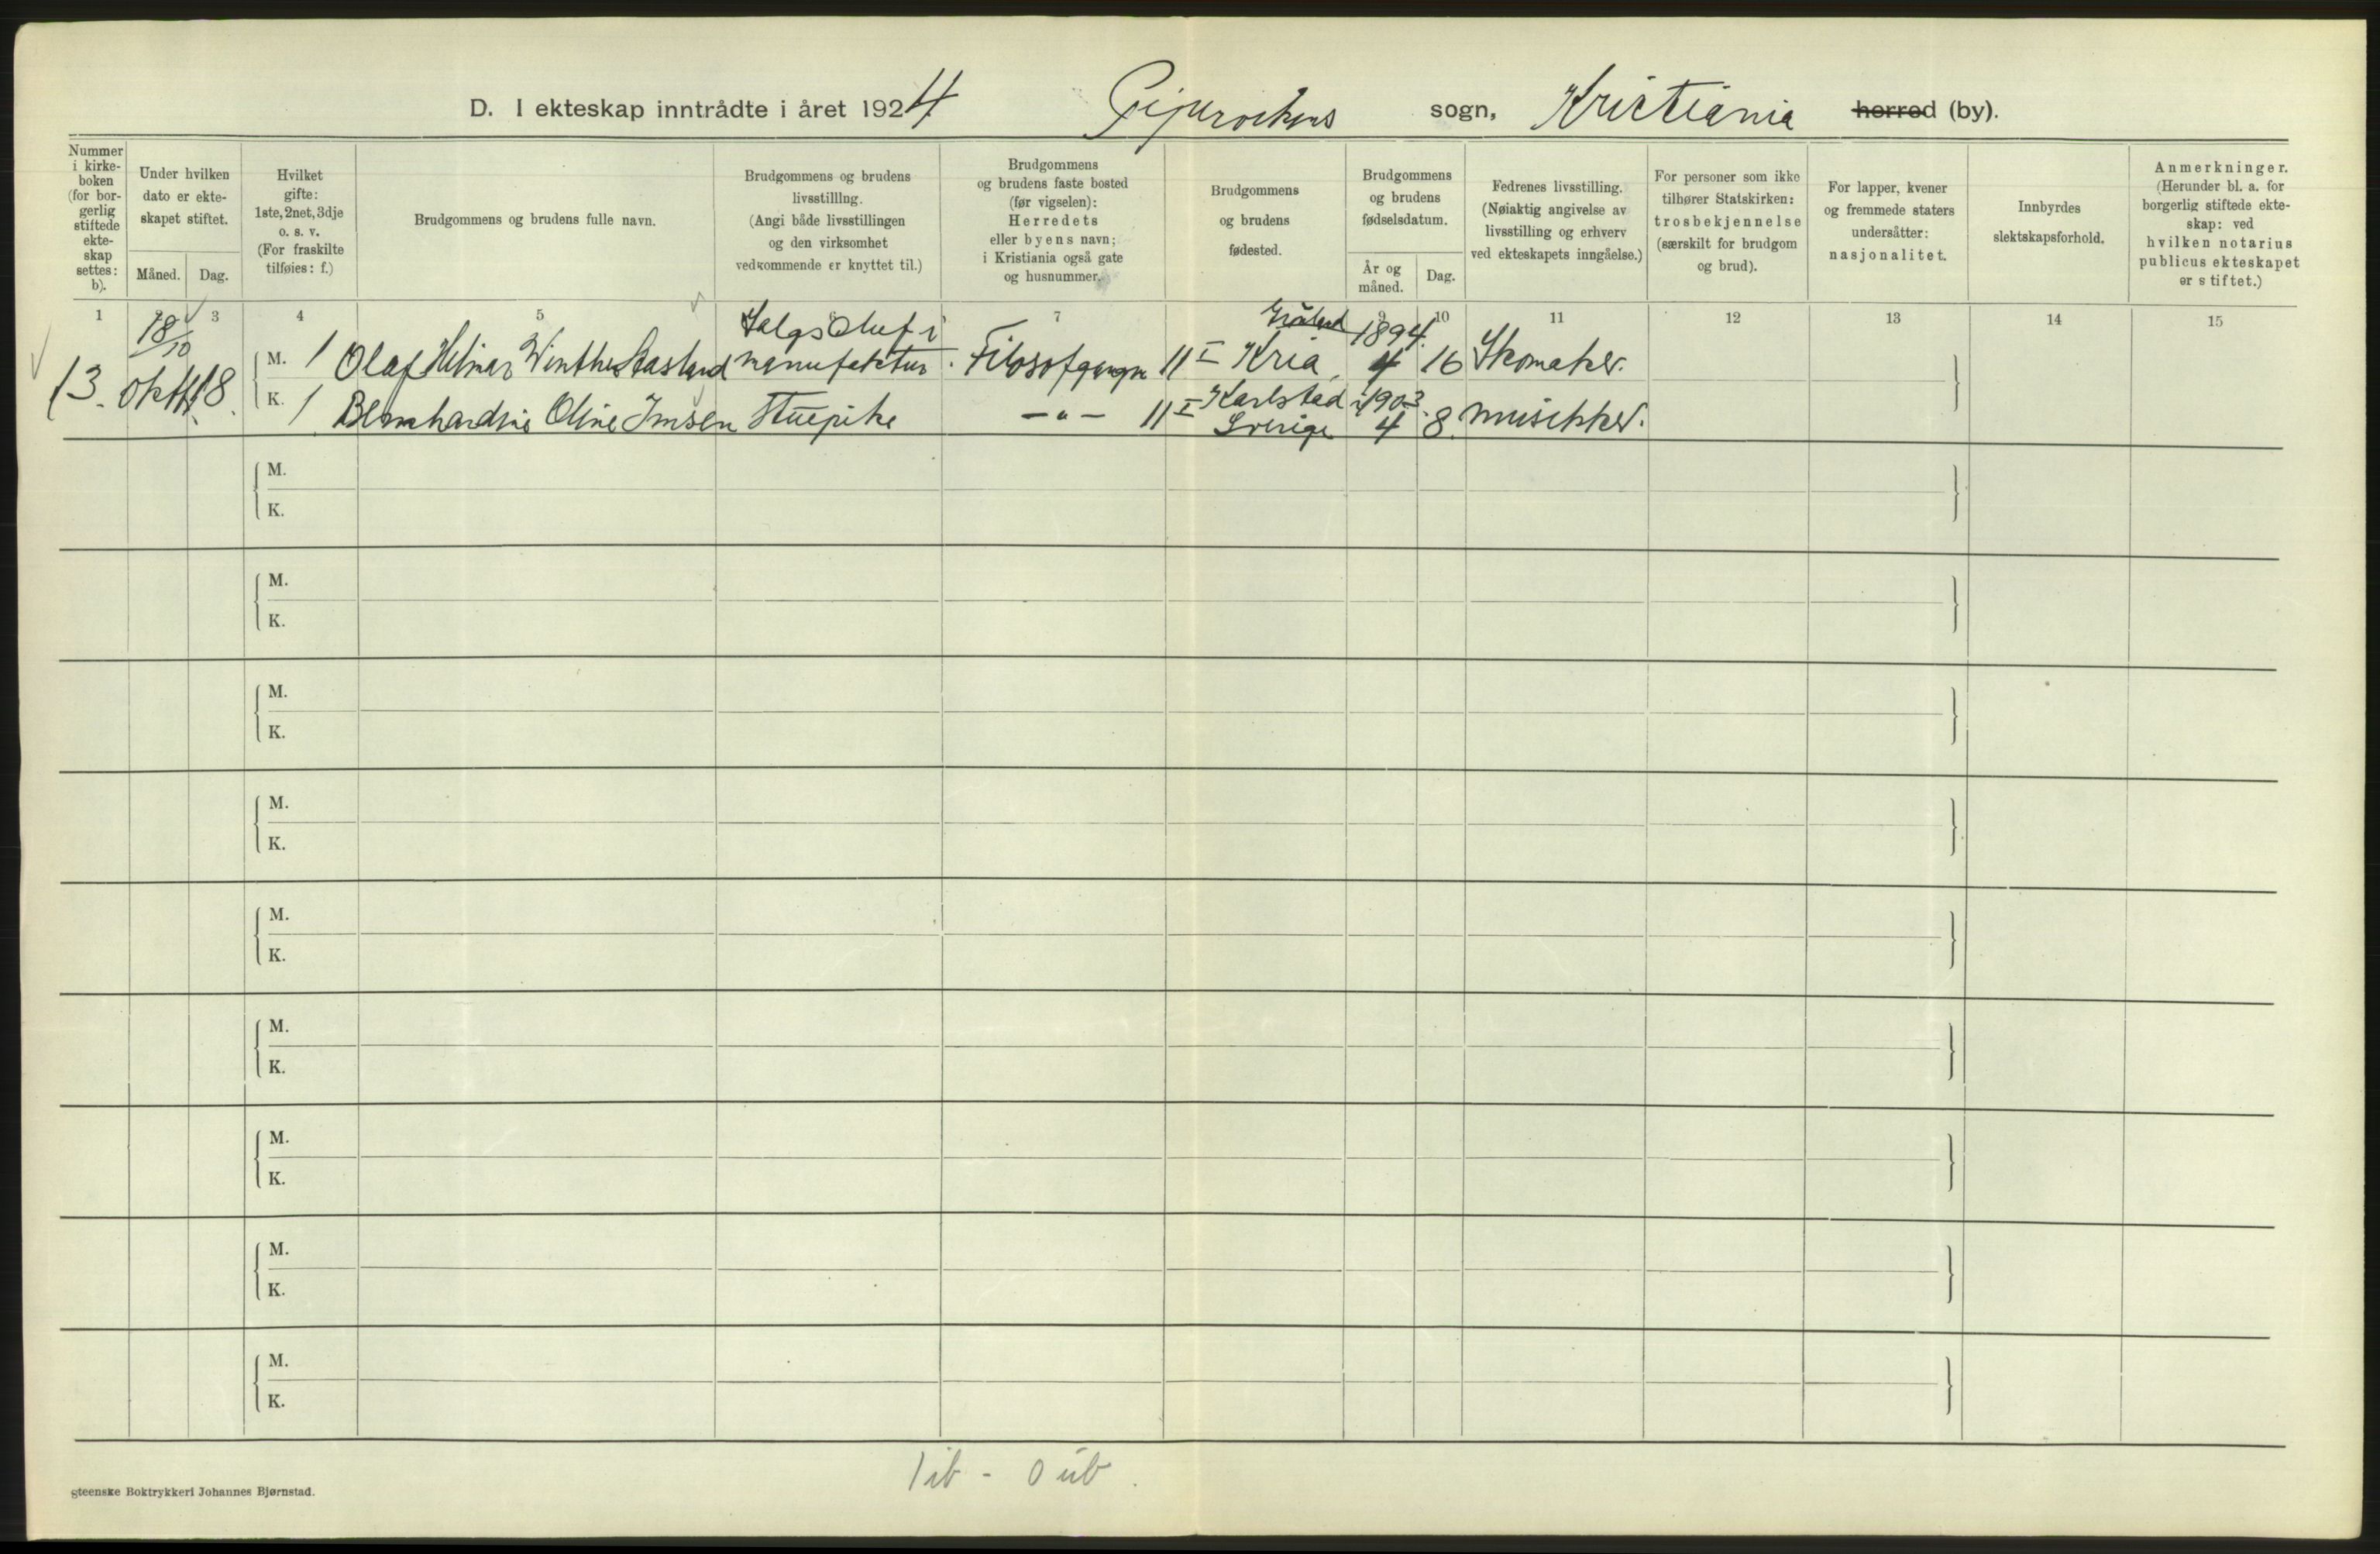 D. I ekteskap inntrådte i året 1924 sogn, Kristiania herred (by).
Nummer i kirke-boken (for bor-gerlig stiftede ekte-skap settes: b).
Under hvilken dato er ekte-skapet stiftet.
Måned. Dag.
Hvilket gifte: 1ste, 2net, 3dje o. s. v. (For fraskilte tilføies: f.)
Brudgommens og brudens fulle navn.
Brudgommens og brudens livsstilllng. (Angi både livsstillingen og den virksomhet vedkommende er knyttet til.)
Brudgommens og brudens faste bosted (før vigselen): Herredets eller byens navn; i Kristiania også gate og husnummer.
Brudgommens og brudens fødested.
Brudgommens og brudens fødselsdatum.
År og måned. Dag.
Fedrenes livsstilling. (Nøiaktig angivelse av livsstilling og erhverv ved ekteskapets inngåelse.)
For personer som ikke tilhører Statskirken: trosbekjennelse (særskilt for brudgom og brud).
For lapper, kvener og fremmede staters undersåtter: nasjonalitet.
Innbyrdes slektskapsforhold.
Anmerkninger. (Herunder bl. a. for borgerlig stiftede ekte-skap: ved hvilken notarius publicus ekteskapet er stiftet.)
1 3 4 5 7 9 10 11 12 13 14 15
18/10 Salgschef i 1894
13. okt. 18. M. 1 Olaf Hilmar Winther manufaktur. Filosofgangen 11 I Kria, 4 16 Skomaker.
Karlstad 1903
K. 1 Bernhardine Oline Imsen Stuepike -"- 11 I Sverige 4 8. musikker.
M.
K.
M.
K.
M.
K.
M.
K.
M.
K.
M.
K.
M.
K.
M.
K.
M.
K.
1 ib - 0 ub.
gteenske Boktrykkeri Johannes Bjørnstad.